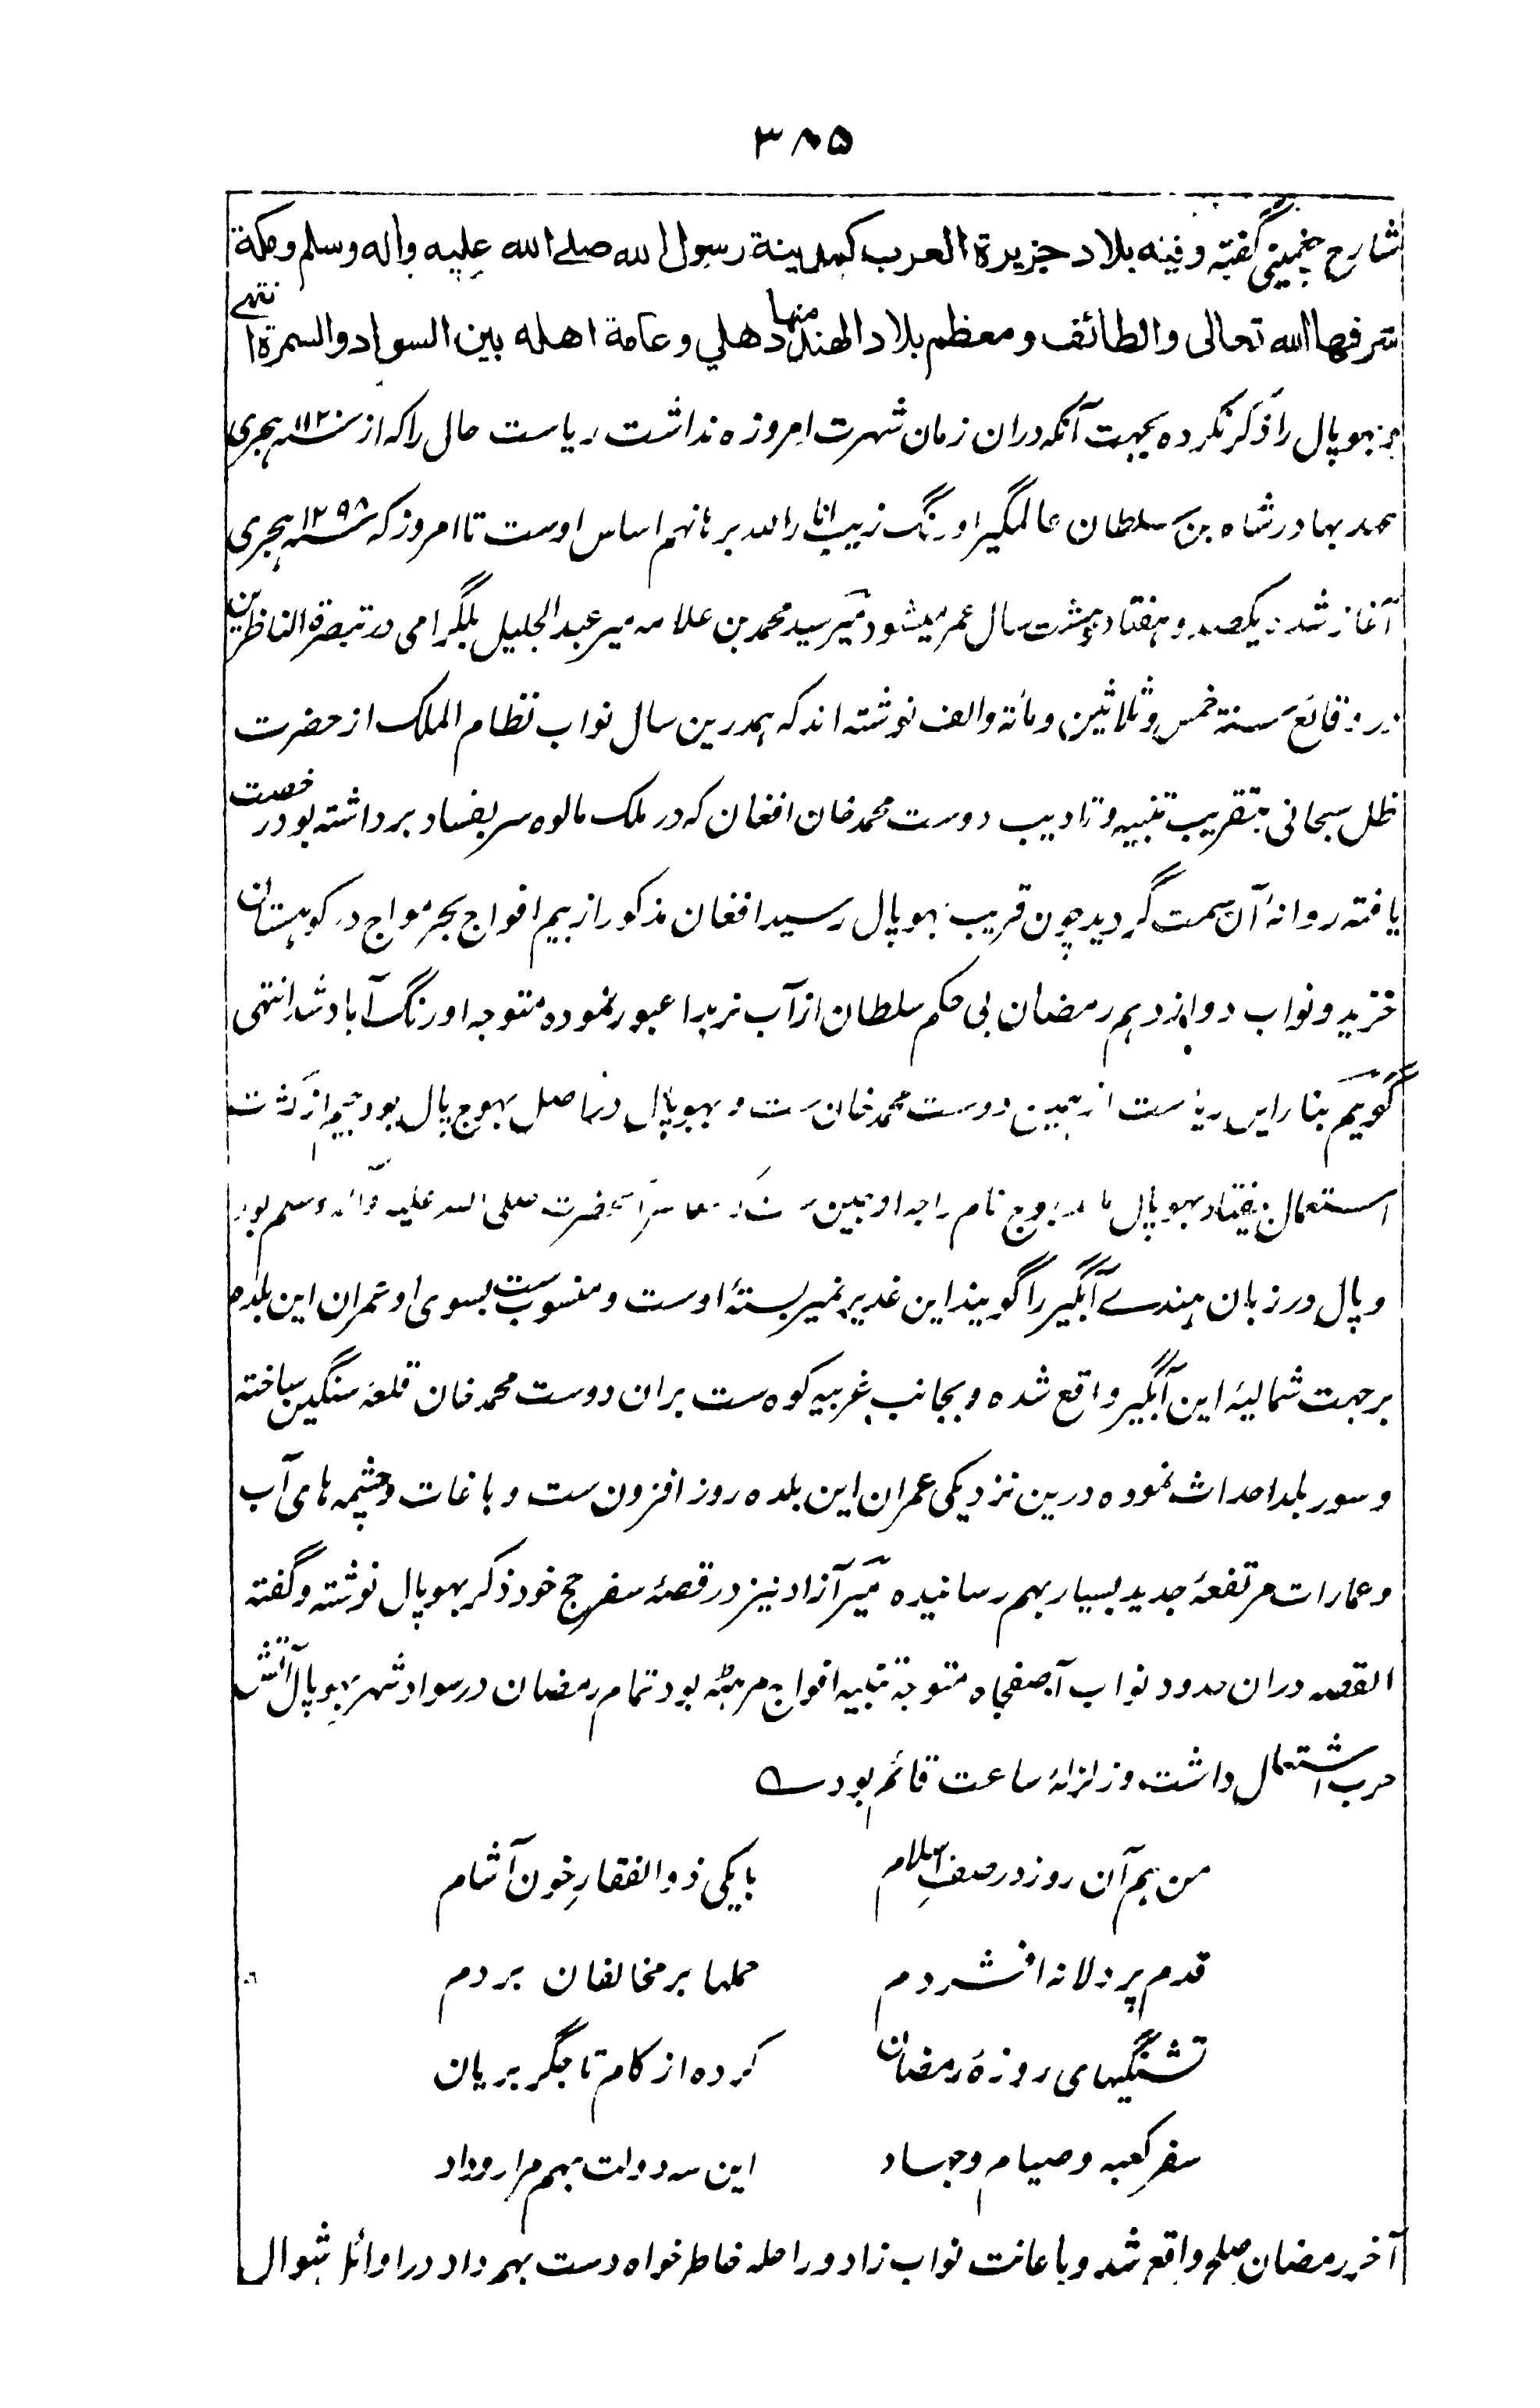 ۳۸۵
شارح چغمینی گفته وفیه بلاد جزیرة العرب کمدینة رسول الله صلے الله علیه واله وسلم ومکة
شرفها الله تعالی والطائف ومعظم بلاد الهند منها دهلي وعامة اهله بین السواد والسمرة انتهے
بهوپال را ذکر نکرده بجهت آنکه دران زمان شهرت امروزه نداشت ریاست حال را که از سنه ۱۱۲۰ هجری
عهد بهادر شاه بن سلطان عالمگیر اورنگ زیب انار الله برهانهم اساس اوست تا امروز که سنه ۱۲۹۸ هجری
آغاز شد یکصد و هفتاد و هشت سال عمر میشود میر سید محمد بن علامه میر عبد الجلیل بلگرامی در تبصرة الناظرین
در وقائع سنة خمس و ثلاثین ومائة والف نوشته اند که همدرین سال نواب نظام الملک از حضرت
ظل سبحانی بتقریب تنبیه و تادیب دوست محمد خان افغان که در ملک مالوه سر بفساد برداشته بود رخصت
یافته روانۀ آن سمت گردید چون قریب بهوپال رسید افغان مذکور از بیم افواج بحر مواج در کوهستان
خزید و نواب دوازدهم رمضان بی حکم سلطان از آب نربدا عبور نموده متوجه اورنگ آباد شد انتهی
گویم بنا راین ریاست از همین دوست محمد خان ست و بهوپال در اصل بهوج پال بود جیم از کثرت
استعمال بیفتاد بهوپال ماند بهوج نام راجه اوجین ست که معاصر آنحضرت صلی الله علیه وآله وسلم بود
و پال در زبان هندے آبگیر را گویند این غدیر نمیر بستۀ اوست و منسوب ست بسوی او عمران این بلده
بر جهت شمالیۀ این آبگیر واقع شده و بجانب غربیه کوه ست بران دوست محمد خان قلعۀ سنگین ساخته
و سور بلد احداث نموده درین نزدیکی عمران این بلده روز افزون ست و باغات و چشمه های آب
و عمارات مرتفعۀ جدید بسیار بهم رسانیده میر آزاد نیز در قصۀ سفر حج خود ذکر بهوپال نوشته و گفته
القصه دران حدود نواب آصفجاه متوجۀ تنبیه افواج مرهٹه بود تمام رمضان در سواد شهر بهوپال آتش
حرب اشتعال داشت و زلزلۀ ساعت قائم بود ے
من هم آن روز در صف اسلام بایکی ذوالفقارِ خون آشام
قدم پر دلانه افشردم حملها بر مخالفان بردم
تشنگیهای روزۀ رمضان کرده از کام تا جگر بریان
سفر کعبه و صیام و جهاد این سه دولت بهم مرا رو داد
آخر رمضان صلح واقع شد و باعانت نواب زاد و راحله خاطر خواه دست بهم داد در اوائل شوال